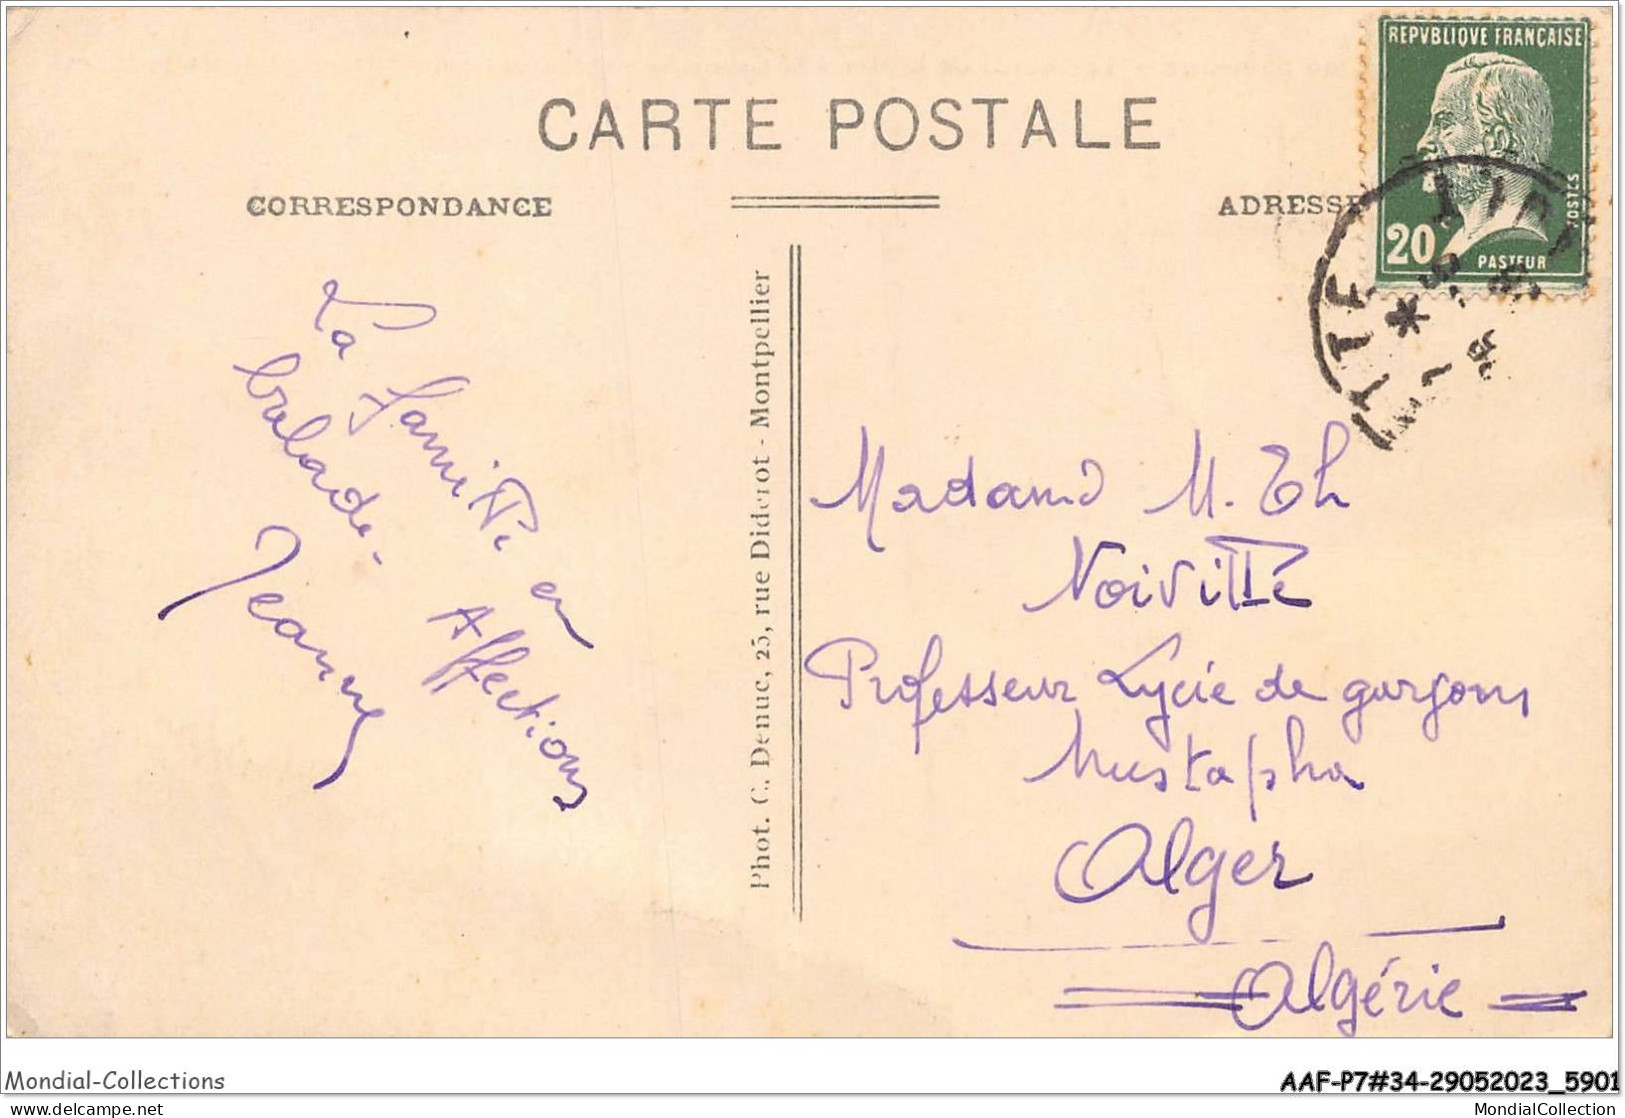 REPVBLIQVE FRANÇAISE
POSTES
20
PASTEUR
CARTE POSTALE
CORRESPONDANCE
ADRESSE
La famille en
balade.
Affections
Jeanne
Phot. C. Denuc, 25, rue Diderot - Montpellier
Madame M. Th
Noiville
Professeur Lycée de garçons
Mustapha
Alger
Algérie
Mondial-Collections
AAF-P7#34-29052023_5901
www.delcampe.net
MondialCollection